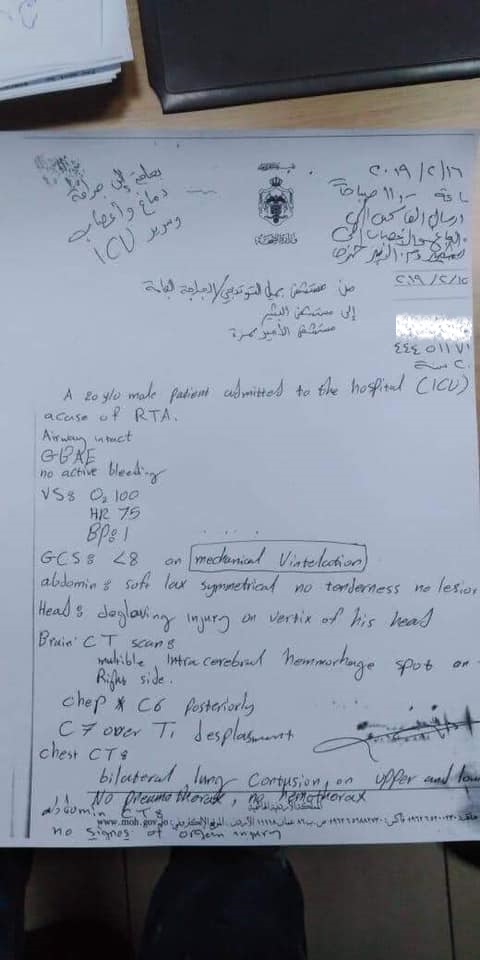 بحاجة إلى جراحة
دماغ وأعصاب
وسرير ICU
٢٠١٩/٢/١٦
وزارة الصحة
٢٠١٩/٢/١٥
من مستشفى جميل التوتنجي/الجراحة العامة
إلى مستشفى البشير
مستشفى الأمير حمزة
٢٠ سنة
A 20 y/o male patient admitted to the hospital (ICU)
a case of RTA.
Airway intact
GBAE
no active bleeding
VS: O2 100
HR 75
BP: 1
GCS: <8 on mechanical Vintelation
abdomin: soft lax symmetrical no tenderness no lesion
Head: degloving injury on vertix of his head
Brain CT scan:
multible intracerebral hemmorhage spot on
Right side.
chep * C6 posteriorly
C7 over T1 desplasment
chest CT:
bilateral lung contusion, on upper and low
No pneumothorax, no hemothorax
abdomin CT:
no signes of organ injury
www.moh.gov.jo